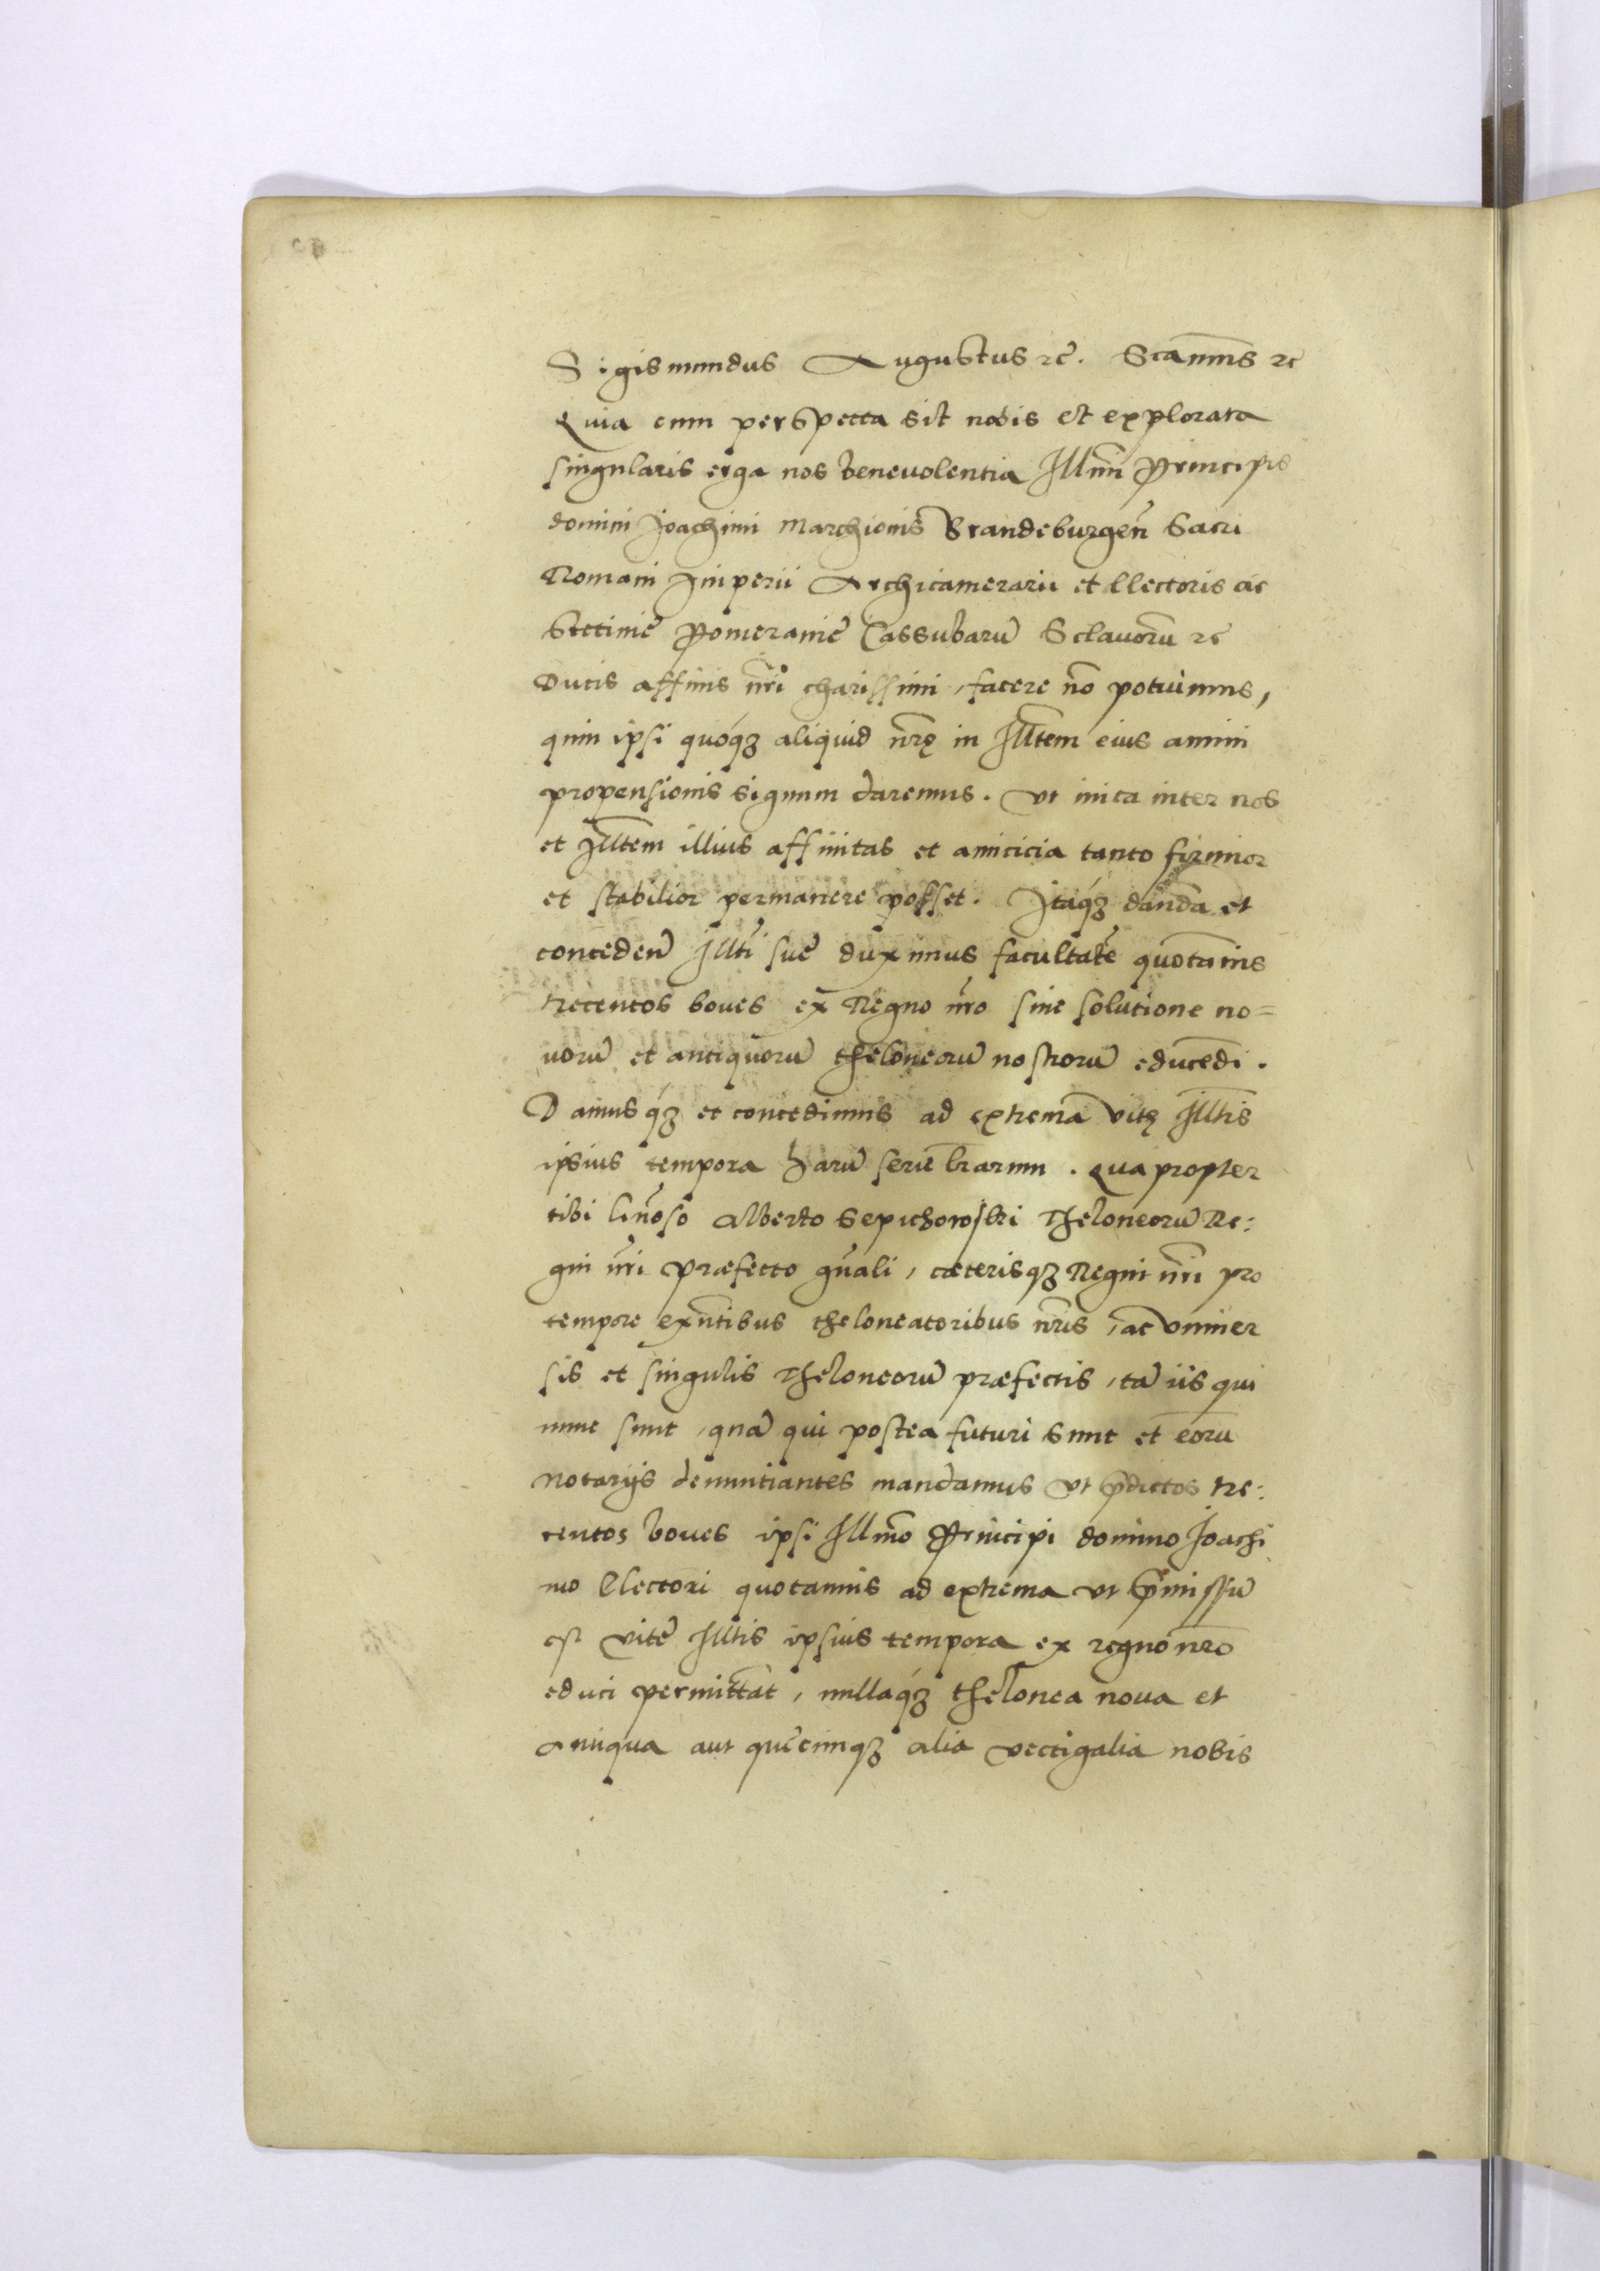 Sigismundus Augustus etc̃. Sca nim̃s etc
Quia cum perspecta sit nobis et explorata
singularis erga nos benevolentia Illm̃i Principis
domini Joachimi Marchionis Brandeburgeñ Sacri
Romani Imperii Archicamerarii et Electoris ac
Stetiniẽ Pomeraniẽ Cassubarũ Sclavorũ etc
Ducis affinis nr̃i charissimi, facere nõ potuimus,
quin ipsi quóqꝫ aliquid nr̃ę in Illtem̃ eius animi
propensionis signum daremus. Vt inita inter nos
et Illtem̃ illius affinitas et amicicia tanto firmior
et stabilior permanere posset. Itáqꝫ dandã et
concedeñ Illti̇̃ suẽ duximus facultatẽ quotãnis
trecentos boues ex Regno nr̃o sine solutione no=
uorũ et antiquorũ theloneorũ nostrorũ educẽdi.
Damusqꝫ́ et concedimus ad extremã vitę Illtis̃
ipsius tempora harũ seriẽ lr̃arum. Quapropter
tibi Gñoso Alberto Sepichowski Theloneorũ Re:
gni nr̃i præfecto gñali, cæterisqꝫ Regni nr̃i pro
tempore exñtibus theloneatoribus nr̃is, ac vniuer
sis et singulis Theloneorũ præfectis, tã iis qui
nunc sunt, quã qui postea futuri sunt et eorũ
notarijs denuntiantes mandamus vt p̃dictos tre:
centos boues ipsi Illm̃o Principi domino Joachi
mo Electori quotannis ad extrema vt p̃missũ
est vitẽ Illtis̃ ipsius tempora ex regno nr̃o
educi permittãt, nullaqꝫ́ thelonea noua et
antiqua aut quẽcunqꝫ alia vectigalia nobis